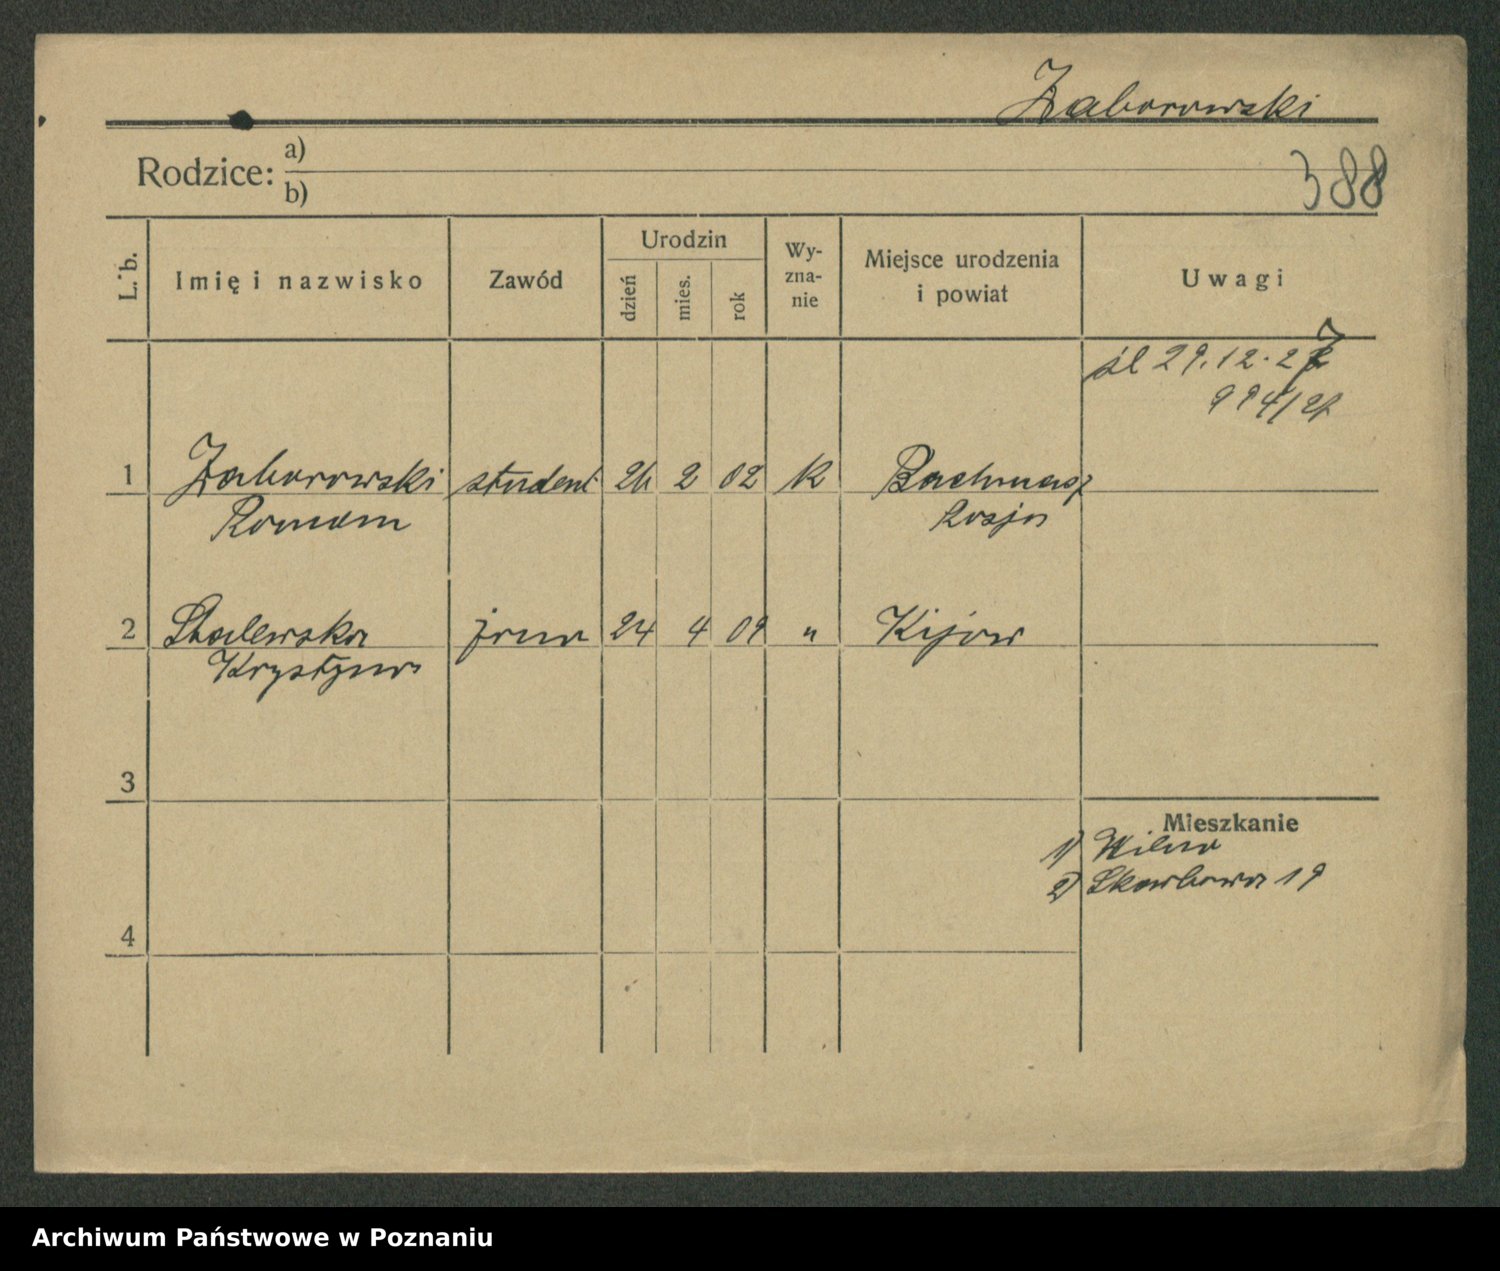 Zaborowski
Rodzice: a)
b)
388
L. b.
Imię i nazwisko
Zawód
Urodzin
dzień
mies.
rok
Wy-
zna-
nie
Miejsce urodzenia
i powiat
Uwagi
śl 29.12.27
994/27
1 Zaborowski student 26 2 02 k
Roman Rosja
2 Krystyna 24 4 09 " Kijow
3
4
Mieszkanie
1) Wilno
2) Skarbowa 19
Archiwum Państwowe w Poznaniu